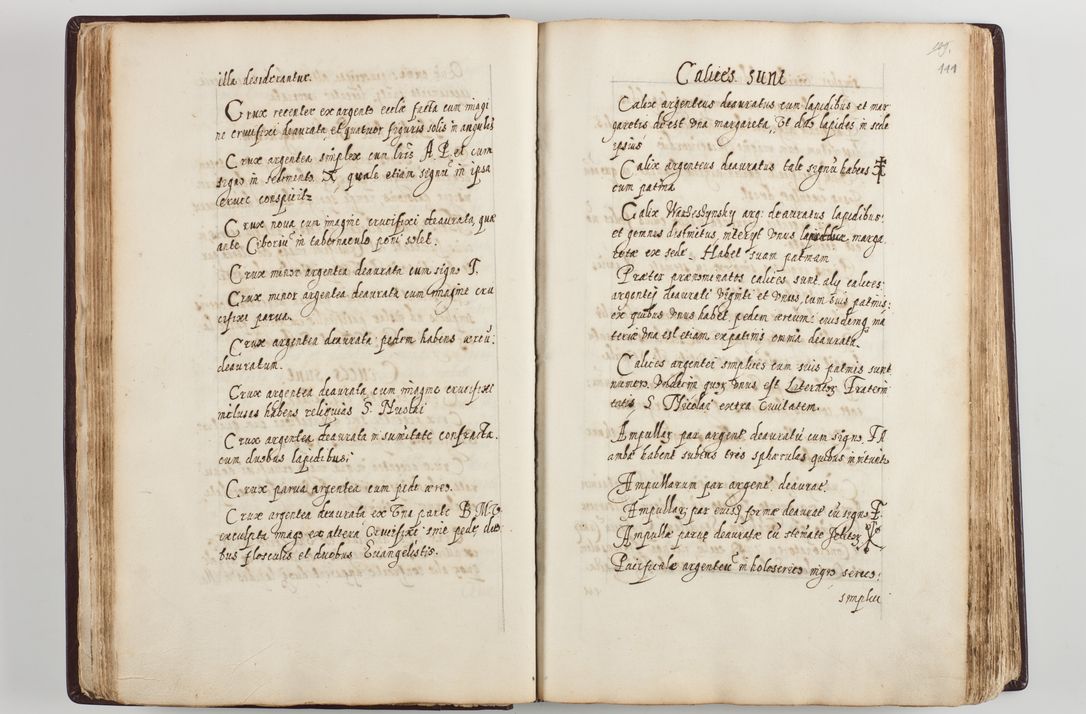 illa desiderantur.
Crux recenter ex argento eccliæ facta cum imagi
ne crucifixi deaurata, et quatuor figuris solis in angulis
Crux argentea simplex cum lris A. P. et cum
signo in sedimento X, quale etiam signũ in ipsa
cruce conspicitr
Crux noua cum imagine crucifixi deaurata, quæ
ante Ciboriũ in tabernaculo poni solet.
Crux minor argentea deaurata cum signo T.
Crux minor argentea deaurata cum imagine cru
cifixi parua.
Crux argentea deaurata pedem habens æreũ:
deauratum.
Crux argentea deaurata cum imagine crucifixi
inclusas habens reliquias S.
Crux argentea deaurata in sumitate confracta.
cum duobus lapidibus:
Crux parua argentea cum pede æreo.
Crux argentea deaurata ex vna parte B. M. V.
exculpta imago ex altera Crucifixi sine pede duo
bus flosculis et duobus Euangelistis.
111
Calices sunt
Calix argenteus deauratus cum lapidibus et mar
garetis deest vna margareta, et duo lapides in sede
ipsius
Calix argenteus deauratus tale signũ habens
cum patina
Calix arg: deauratus lapidibus:
et gemmis distinctus, interijt vnus marga
ex sede. Habet suam patinam
Præter prænominatos calices sunt alij calices
argentej deaurati viginti et vnus, cum suis patinis:
ex quibus vnus habet pedem æreum: eiusdemq ma
teriæ vna est etiam ex patinis omnia deaurata.
Calices argentei simplices cum suis patinis sunt
numero vndecim quor vnus est Fraterni
tatis S. Nicolai extra Ciuitatem.
Ampullar par argent deauratũ cum signo,
ambæ habent subtus tres sphærulas quibus inituntr
Ampullarum par argent deaurat.
Ampullar par eiusd formæ deaurat cũ signo F.
Ampullæ paruæ deauratæ cũ stemate
Pacificale argenteũ in holoserico nigro sereo:
simplici